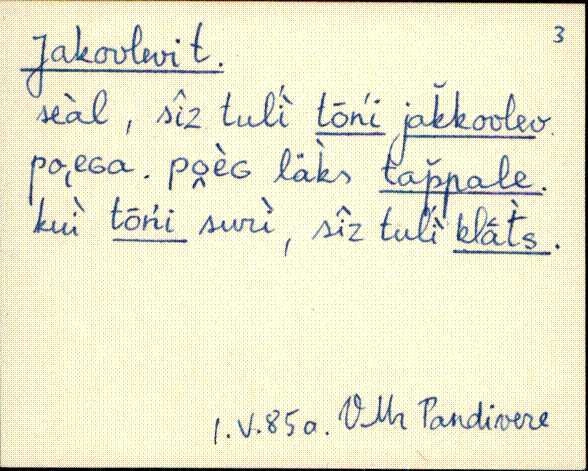 3
Jakovlevit.
seàl, sîz tuĺì tōńi jak̆kovlev
po̬eGa. po̯èG läk̀s tap̆pale.
kuì tōńi surì, sîz tuĺì klāt̀s.
1.V.85a. VMr Pandivere